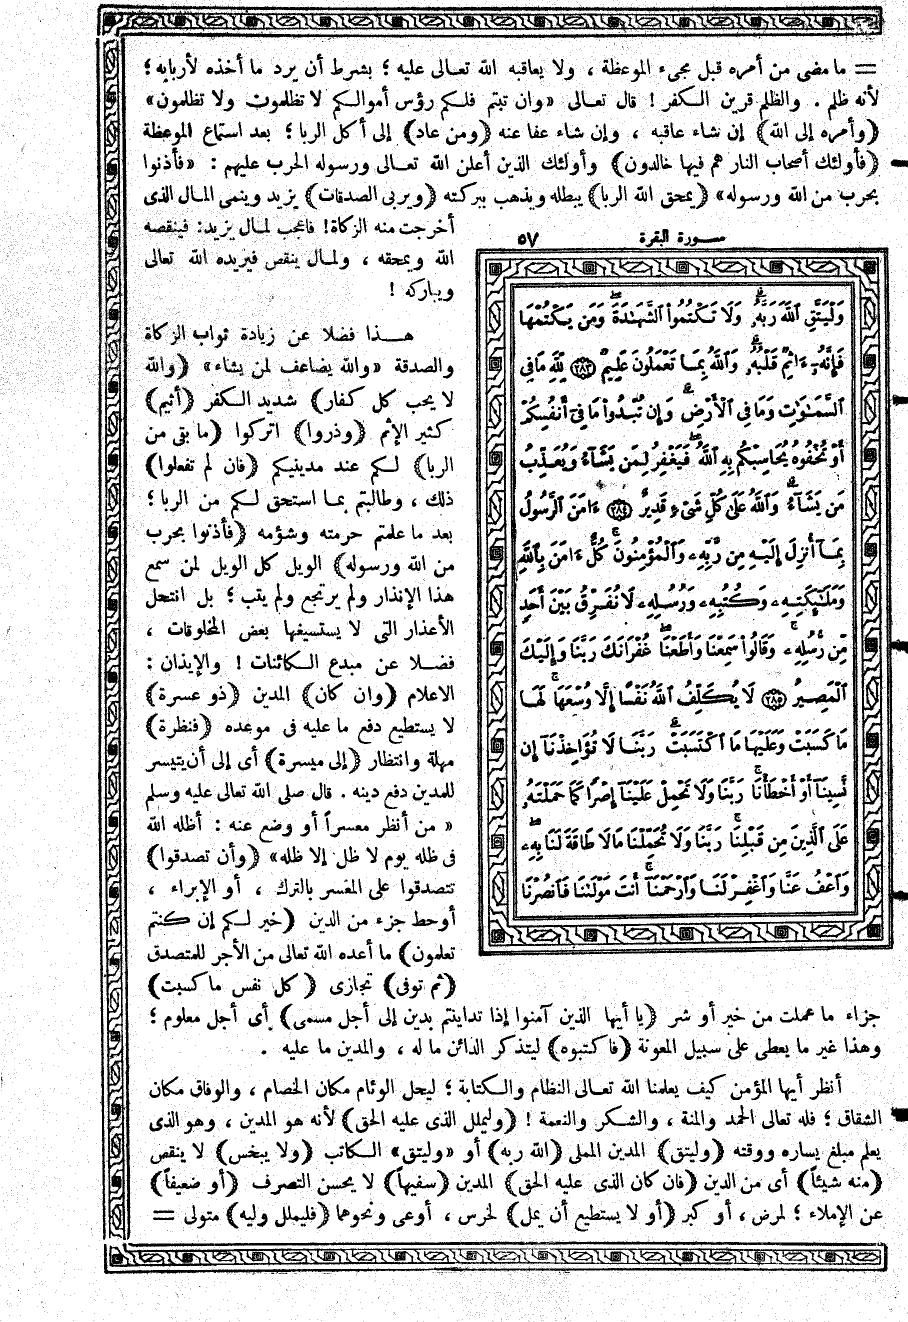 = ما مضى من أمره قبل مجىء الموعظة ، ولا يعاقبه الله تعالى عليه ؛ بشرط أن يرد ما أخذه لأربابه ؛
لأنه ظلم . والظلم قرين الكفر ! قال تعالى «وان تبتم فلكم رؤس أموالكم لا تظلمون ولا تظلمون»
(وأمره إلى الله) إن شاء عاقبه ، وإن شاء عفا عنه (ومن عاد) إلى أكل الربا ؛ بعد استماع الموعظة
(فأولئك أصحاب النار هم فيها خالدون) وأولئك الذين أعلن الله تعالى ورسوله الحرب عليهم : «فأذنوا
بحرب من الله ورسوله» (يمحق الله الربا) يبطله ويذهب ببركته (ويربى الصدقات) يزيد وينمى المال الذى
أخرجت منه الزكاة! فاعجب لمال يزيد: فينقصه
الله ويمحقه ، ولمال ينقص فيريده الله تعالى
ويباركه !
هـذا فضلا عن زيادة ثواب الزكاة
والصدقة «والله يضاعف لمن يشاء» (والله
لا يحب كل كفار) شديد الكفر (أثيم)
كثير الإثم (وذروا) اتركوا (ما بقى من
الربا) لكم عند مدينيكم (فان لم تفعلوا)
ذلك ، وطالبتم بما استحق لكم من الربا ؛
بعد ما علمتم حرمته وشؤمه (فأذنوا بحرب
من الله ورسوله) الويل كل الويل لمن سمع
هذا الإنذار ولم يرتجع ولم يتب ؛ بل انتحل
الأعذار التى لا يستسيغها بعض المخلوقات ،
فضلا عن مبدع الكائنات ! والإيذان :
الاعلام (وان كان) المدين (ذو عسرة)
لا يستطيع دفع ما عليه فى موعده (فنظرة)
مهلة وانتظار (إلى ميسرة) أى إلى أن يتيسر
للمدين دفع دينه . قال صلى الله تعالى عليه وسلم
« من أنظر معسراً أو وضع عنه : أظله الله
فى ظله يوم لا ظل إلا ظله» (وأن تصدقوا)
تتصدقوا على المعسر بالترك ، أو الإبراء ،
أوحط جزء من الدين (خير لكم إن كنتم
تعلمون) ما أعده الله تعالى من الأجر للمتصدق
(ثم توفى) تجازى (كل نفس ما كسبت)
جزاء ما عملت من خير أو شر (يا أيها الذين آمنوا إذا تداينتم بدين إلى أجل مسمى) أى أجل معلوم ؛
وهذا غير ما يعطى على سبيل المعونة (فاكتبوه) ليتذكر الدائن ما له ، والمدين ما عليه .
أنظر أيها المؤمن كيف يعلمنا الله تعالى النظام والكتابة ؛ ليحل الوئام مكان الخصام ، والوفاق مكان
الشقاق ؛ فله تعالى الحمد والمنة ، والشكر والنعمة ! (وليملل الذى عليه الحق) لأنه هو المدين ، وهو الذى
يعلم مبلغ يساره ووقته (وليتق) المدين المملى (الله ربه) أو «وليتق» الكاتب (ولا يبخس) لا ينقص
(منه شيئاً) أى من الدين (فان كان الذى عليه الحق) المدين (سفيهاً) لا يحسن التصرف (أو ضعيفاً)
عن الإملاء ؛ لمرض ، أو كبر (أو لا يستطيع أن يمل) لخرس ، أوعى ونحوهما (فليملل وليه) متولى =
سورة البقرة ٥٧
وَلْيَتَّقِ ٱللَّهَ رَبَّهُۥ وَلَا تَكْتُمُوا۟ ٱلشَّهَٰدَةَ وَمَن يَكْتُمْهَا
فَإِنَّهُۥٓ ءَاثِمٌ قَلْبُهُۥ وَٱللَّهُ بِمَا تَعْمَلُونَ عَلِيمٌ ٢٨٣ لِلَّهِ مَا فِى
ٱلسَّمَٰوَٰتِ وَمَا فِى ٱلْأَرْضِ وَإِن تُبْدُوا۟ مَا فِىٓ أَنفُسِكُمْ
أَوْ تُخْفُوهُ يُحَاسِبْكُم بِهِ ٱللَّهُ فَيَغْفِرُ لِمَن يَشَآءُ وَيُعَذِّبُ
مَن يَشَآءُ وَٱللَّهُ عَلَىٰ كُلِّ شَىْءٍ قَدِيرٌ ٢٨٤ ءَامَنَ ٱلرَّسُولُ
بِمَآ أُنزِلَ إِلَيْهِ مِن رَّبِّهِۦ وَٱلْمُؤْمِنُونَ كُلٌّ ءَامَنَ بِٱللَّهِ
وَمَلَٰٓئِكَتِهِۦ وَكُتُبِهِۦ وَرُسُلِهِۦ لَا نُفَرِّقُ بَيْنَ أَحَدٍ
مِّن رُّسُلِهِۦ وَقَالُوا۟ سَمِعْنَا وَأَطَعْنَا غُفْرَانَكَ رَبَّنَا وَإِلَيْكَ
ٱلْمَصِيرُ ٢٨٥ لَا يُكَلِّفُ ٱللَّهُ نَفْسًا إِلَّا وُسْعَهَا لَهَا
مَا كَسَبَتْ وَعَلَيْهَا مَا ٱكْتَسَبَتْ رَبَّنَا لَا تُؤَاخِذْنَآ إِن
نَّسِينَآ أَوْ أَخْطَأْنَا رَبَّنَا وَلَا تَحْمِلْ عَلَيْنَآ إِصْرًا كَمَا حَمَلْتَهُۥ
عَلَى ٱلَّذِينَ مِن قَبْلِنَا رَبَّنَا وَلَا تُحَمِّلْنَا مَا لَا طَاقَةَ لَنَا بِهِۦ
وَٱعْفُ عَنَّا وَٱغْفِرْ لَنَا وَٱرْحَمْنَآ أَنتَ مَوْلَىٰنَا فَٱنصُرْنَا